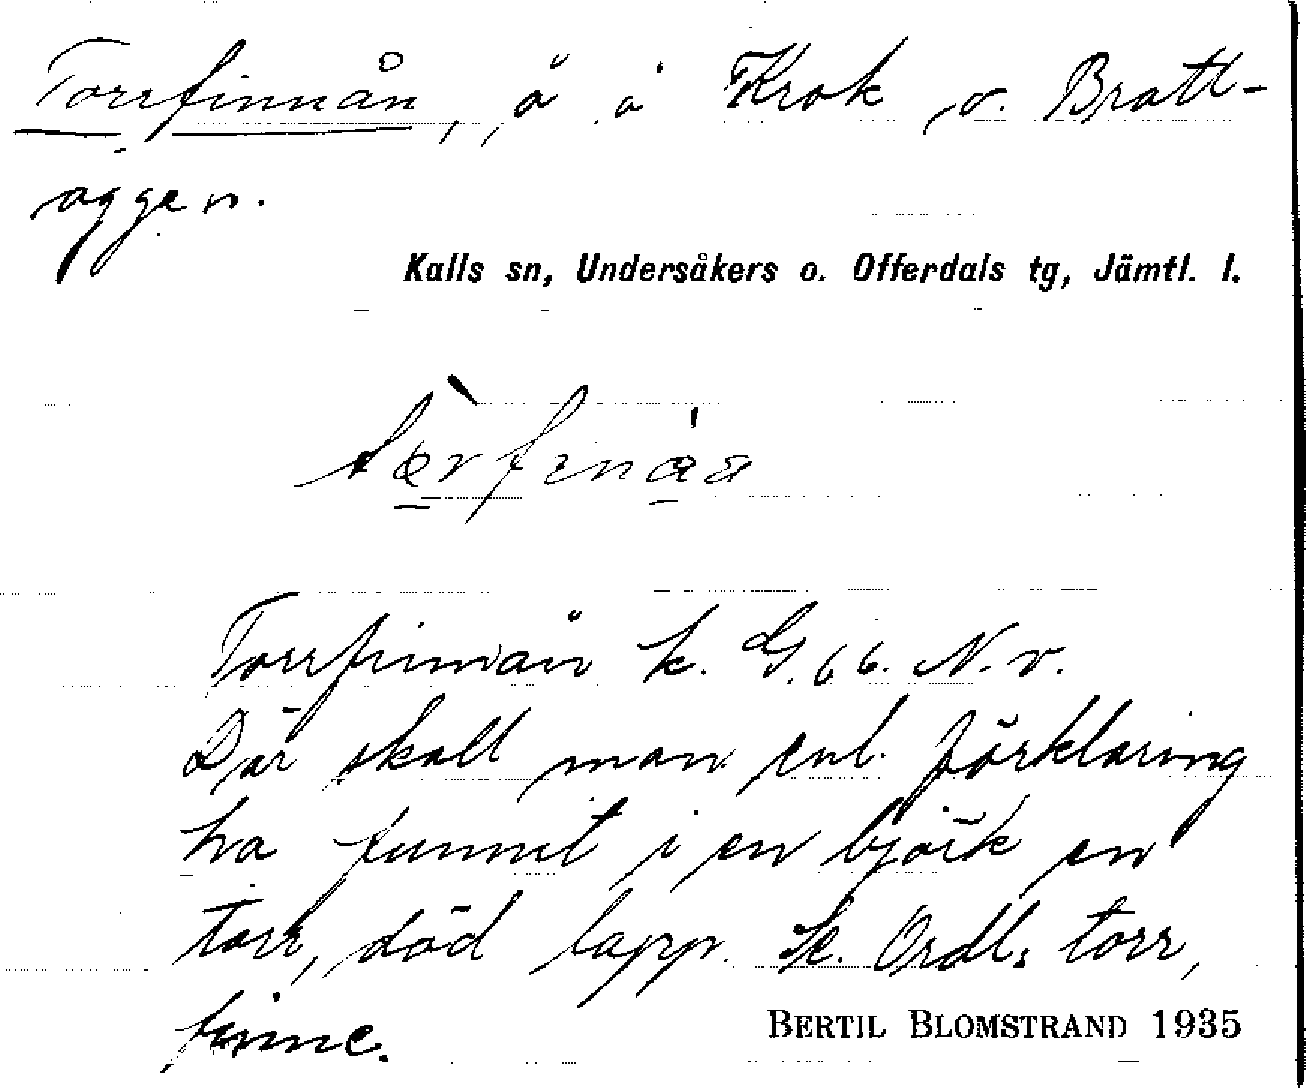 Torrfinnån, å i Krok v. Bratt-
äggen.
Kalls sn, Undersåkers o. Offerdals tg, Jämtl. l.
Torrfinnån k. G. 66. N. v.
Där skall man enl. förklaring
ha funnit i en björk en
torr, död lapp. Se Ordl. torr,
finne.
BERTIL BLOMSTRAND 1935